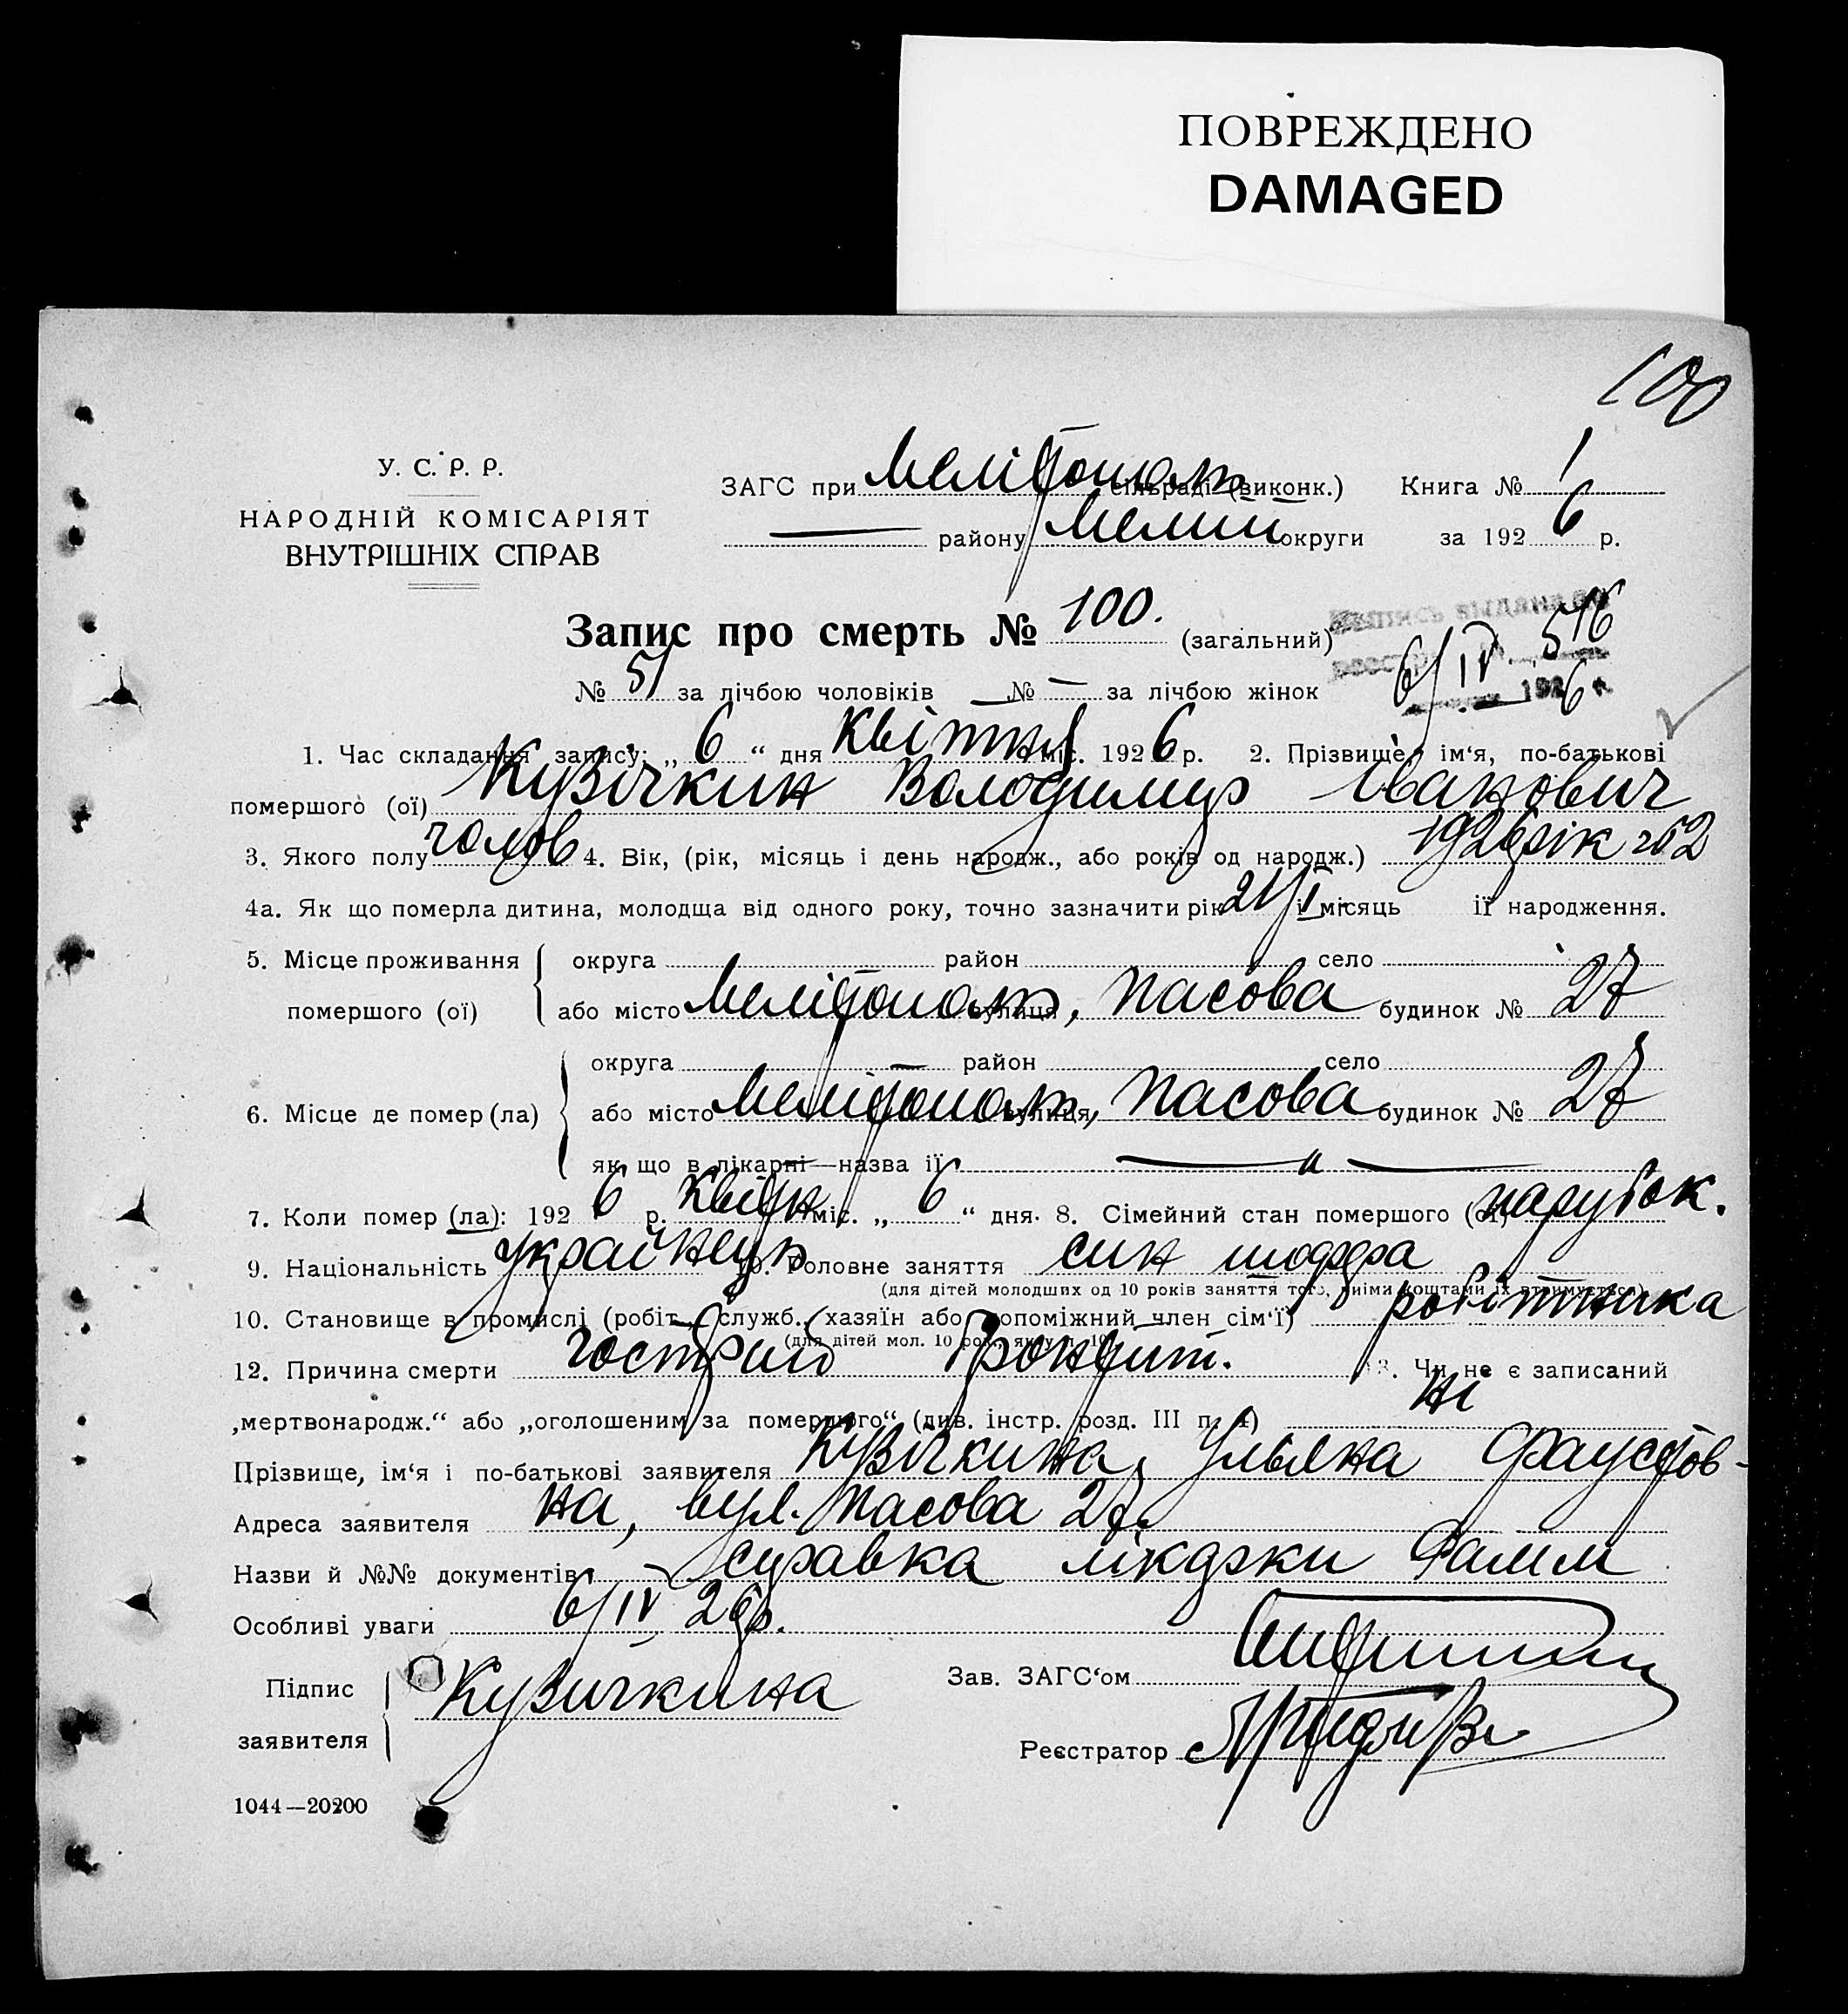 ПОВРЕЖДЕНО
DAMAGED
100
У. С. Р. Р.
НАРОДНІЙ КОМІСАРІЯТ
ВНУТРІШНІХ СПРАВ
ЗАГС при Мелітопол сільраді (виконк.) Книга № 1
— району Мелит округи за 1926 р.
Запис про смерть № 100. (загальний)
Выпись выдана
6/IV 516
1926 г.
№ 51 за лічбою чоловіків — № — за лічбою жінок
1. Час складання запису: „ 6 “ дня Квітня міс. 1926 р. 2. Прізвище, ім‘я, по-батькові
помершого (ої) Кузічкин Володимир Іванович
3. Якого полу чолов 4. Вік, (рік, місяць і день народж., або років од народж.) 1926 рік
4а. Як що померла дитина, молодща від одного року, точно зазначити рік 21/I і місяць її народження.
5. Місце проживання помершого (ої) округа район село
або місто Мелітопол, вулиця Пасова будинок № 27
6. Місце де помер (ла) округа район село
або місто Мелітопол, вулиця Пасова будинок № 27
як що в лікарні—назва її — „ —
7. Коли помер (ла): 1926 р. Квітн міс. „ 6 “ дня. 8. Сімейний стан помершого (ої) парубок.
9. Національність Українець 10. Головне заняття син шофера
(для дітей молодших од 10 років заняття того, чиїми коштами їх втримується)
10. Становище в промислі (робіт., служб., хазяїн або допоміжний член сім‘ї) робітника
(для дітей мол. 10 рок., як у п. 10)
12. Причина смерти гострий Бронхит. 13. Чи не є записаний
„мертвонародж.“ або „оголошеним за померлого“ (див. інстр. розд. III п. 4) ні
Прізвище, ім‘я і по-батькові заявителя Кузічкина, Ульяна Фаустов-
Адреса заявителя на, вул. Пасова 27
Назви й №№ документів справка лікарки
Особливі уваги 6/IV 26р.
Підпис заявителя Кузичкина
Зав. ЗАГС‘ом
Реєстратор
1044—20200